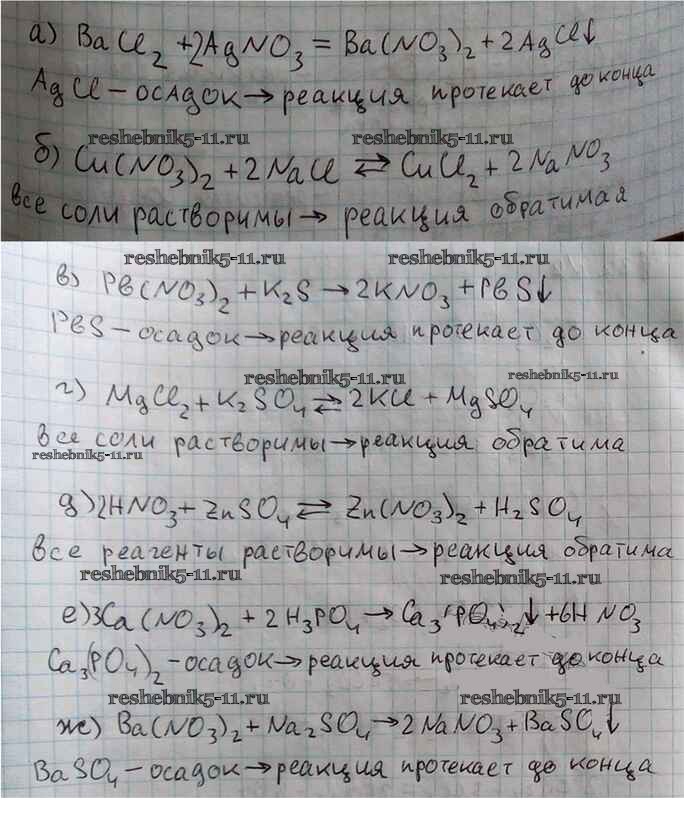 а) BaCl₂ + 2AgNO₃ = Ba(NO₃)₂ + 2AgCl↓
AgCl – осадок → реакция протекает до конца
reshebnik5-11.ru reshebnik5-11.ru
б) Cu(NO₃)₂ + 2NaCl ⇄ CuCl₂ + 2NaNO₃
все соли растворимы → реакция обратимая
reshebnik5-11.ru reshebnik5-11.ru
в) Pb(NO₃)₂ + K₂S → 2KNO₃ + PbS↓
PbS – осадок → реакция протекает до конца
reshebnik5-11.ru reshebnik5-11.ru
г) MgCl₂ + K₂SO₄ ⇄ 2KCl + MgSO₄
все соли растворимы → реакция обратима
reshebnik5-11.ru
д) 2HNO₃ + ZnSO₄ ⇄ Zn(NO₃)₂ + H₂SO₄
все реагенты растворимы → реакция обратима
reshebnik5-11.ru reshebnik5-11.ru
е) 3Ca(NO₃)₂ + 2H₃PO₄ → Ca₃(PO₄)₂↓ + 6HNO₃
Ca₃(PO₄)₂ – осадок → реакция протекает до конца
reshebnik5-11.ru reshebnik5-11.ru
же) Ba(NO₃)₂ + Na₂SO₄ → 2NaNO₃ + BaSO₄↓
BaSO₄ – осадок → реакция протекает до конца